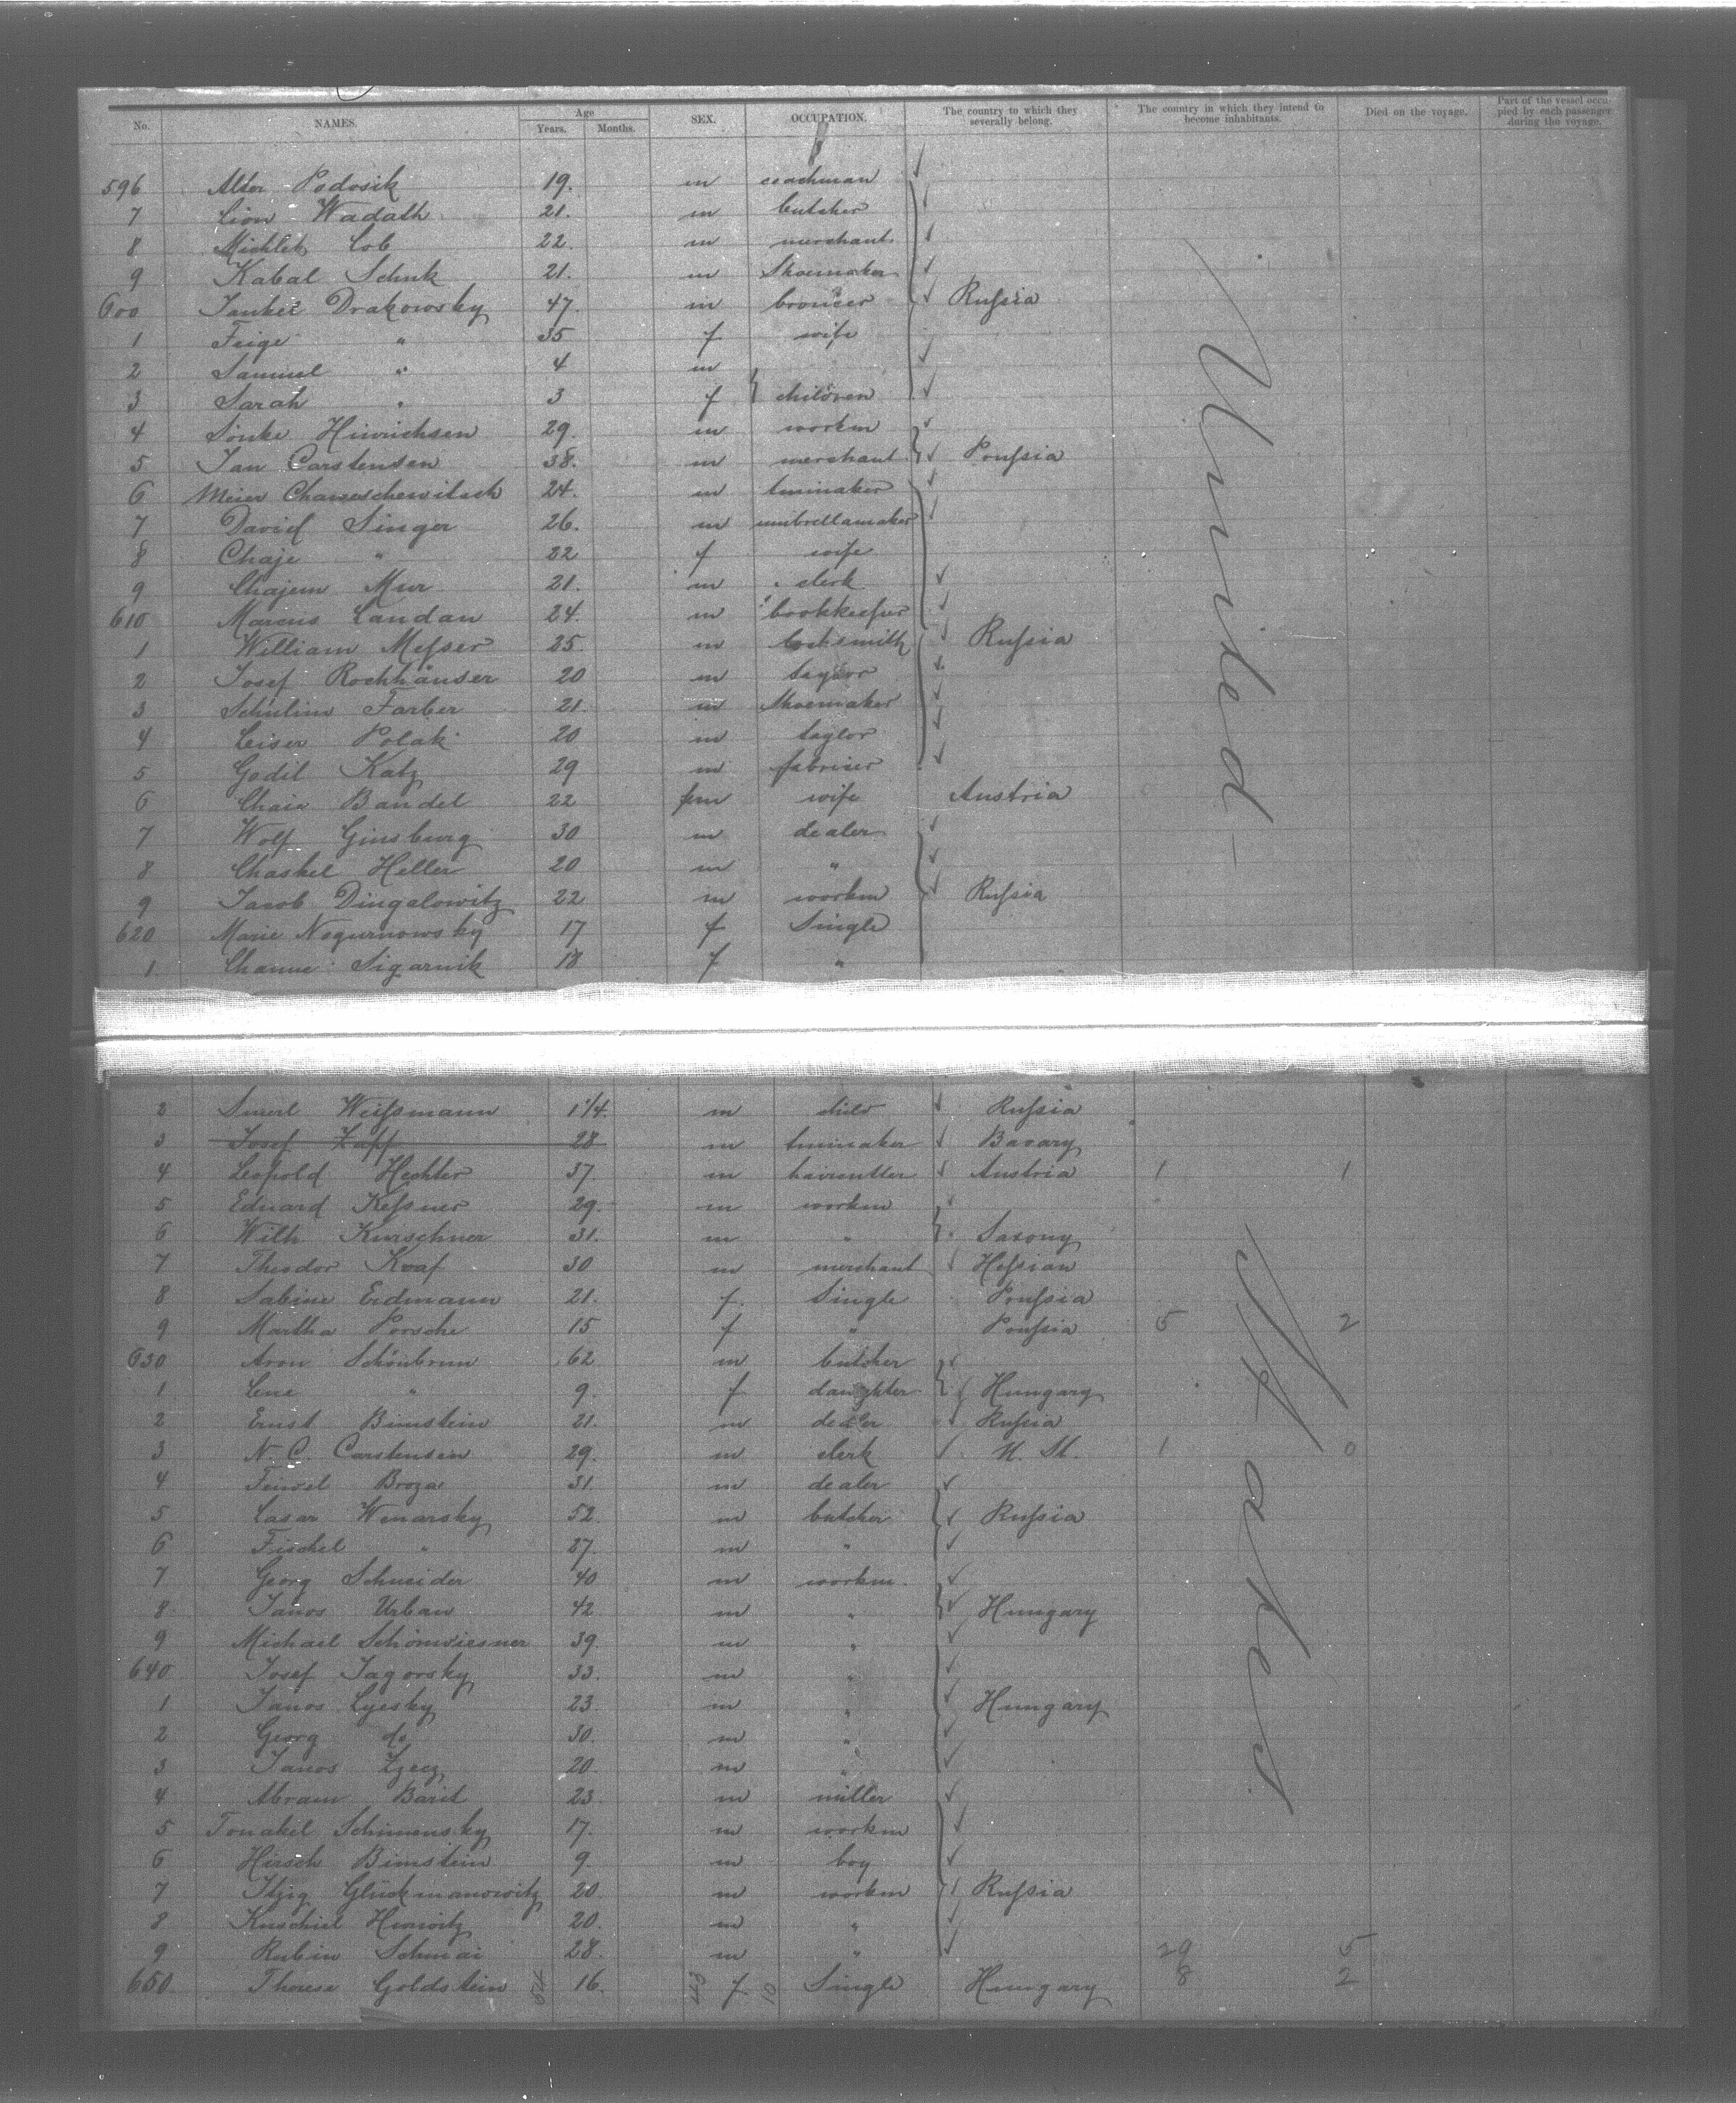 No. NAMES. Age Years. Months. SEX. OCCUPATION. The country to which they severally belong. The country in which they intend to become inhabitants. Died on the voyage. Part of the vessel occupied by each passenger during the voyage.
596 Alter Podosik 19. m coachman
7 Lion Wadath 21. m butcher
8 Michlek Lob 22. m merchant
9 Kabal Schuk 21. m Shoemaker
600 Jankel Drakowsky 47. m Rußia
1 Feige " 35 f wife
2 Samuel " 4 m
3 Sarah " 3 f children
4 Sönke Hinrichsen 29. m workm
5 Jan Carstensen 38. m merchant Preußia
6 Meier 24. m
7 David Singer 26. m umbrellamaker
8 Chaje " 22 f wife
9 Chajem Mur 21. m clerk
610 Marcus Landau 24. m bookkeeper
1 William Meßer 25. m locksmith Rußia
2 Josef Rochhäuser 20 m taylor
3 Schulim Farber 21. m Shoemaker
4 Leiser Polak 20 m taylor
5 Godil Katz 29 m
6 Chaie Bandel 22 fm wife Austria
7 Wolf Ginsburg 30 m dealer
8 Chaskel Heller 20 m "
9 Jacob Dingalowitz 22 m workm Rußia
620 Marie Nogurnowsky 17 f Single
1 Channe Sigarnik 18 f "
United
2 Weißmann 1 1/4. m child Rußia
3 Josef Zapf 28 m Bavary
4 Leopold Hechter 37. m haircutter Austria 1 1
5 Eduard Keßner 29. m workm
6 Wilh Kurschner 31. m " Saxony
7 Theodor Kraf 30 m merchant Heßian
8 Sabine Erdmann 21. f. Single Preußia
9 Martha Porsche 15 f " Preußia 5 2
630 Aron Schönbrun 62 m butcher
1 Lene " 9. f daughter Hungary
2 Ernst Bimstein 21. m dealer Rußia
3 N. C. Carstensen 29. m clerk U. St. 1 0
4 Feiwel Broza 31 m dealer
5 Lasar Winarsky 52. m butcher Rußia
6 Fischel " 27. m "
7 Georg Schneider 40 m workm.
8 Janos Urban 42 m " Hungary
9 Michael Schönwiesner 39. m "
640 Josef Jagorsky 33. m "
1 Janos Lyesky 23. m " Hungary
2 Georg do 30. m "
3 Janos 20. m "
4 Abram Barit 23. m miller
5 Schimensky 17. m workm
6 Hirsch Bimstein 9. m boy
7 Itzig Glückmanowitz 20. m workm Rußia
8 Horwitz 20. m "
9 Rubin Schmai 28. m " 29 5
650 Therese Goldstein 16. f. Single Hungary 8 2
States